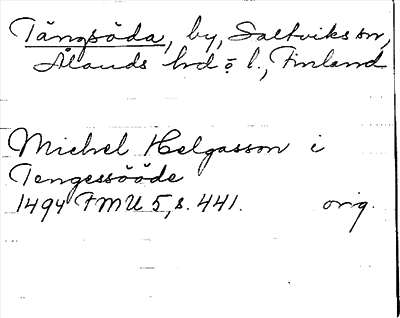 Tängsöda, by, Saltviks sn,
Ålands hd o l., Finland
Michel Helgasson i
Tengessööde
1494 FMU 5, s. 441. orig.